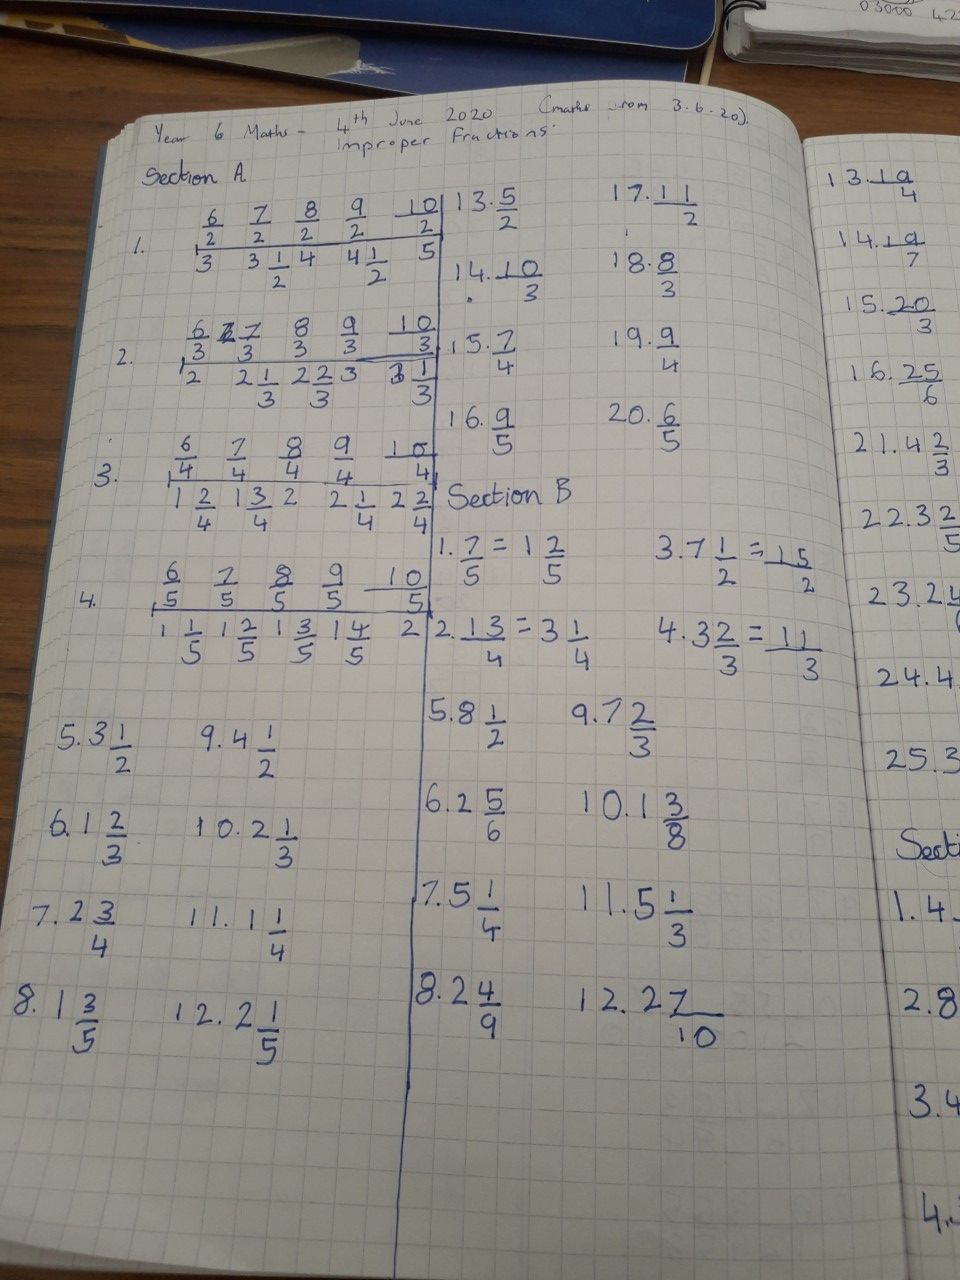 03000
Year 6 Maths - 4th June 2020 (maths from 3.6.20).
Improper Fractions.
Section A
1. 6/2 7/2 8/2 9/2 10/2
3 3 1/2 4 4 1/2 5
2. 6/3 7/3 8/3 9/3 10/3
2 2 1/3 2 2/3 3 3 1/3
3. 6/4 7/4 8/4 9/4 10/4
1 2/4 1 3/4 2 2 1/4 2 2/4
4. 6/5 7/5 8/5 9/5 10/5
1 1/5 1 2/5 1 3/5 1 4/5 2
5. 3 1/2 9. 4 1/2
6. 1 2/3 10. 2 1/3
7. 2 3/4 11. 1 1/4
8. 1 3/5 12. 2 1/5
13. 5/2 17. 11/2
14. 10/3 18. 8/3
15. 7/4 19. 9/4
16. 9/5 20. 6/5
Section B
1. 7/5 = 1 2/5 3. 7 1/2 = 15/2
2. 13/4 = 3 1/4 4. 3 2/3 = 11/3
5. 8 1/2 9. 7 2/3
6. 2 5/6 10. 1 3/8
7. 5 1/4 11. 5 1/3
8. 2 4/9 12. 2 7/10
13. 19/4
14. 19/7
15. 20/3
16. 25/6
21. 4 2/3
22. 3 2/5
23. 2 4
24. 4
25. 3
Secti
1. 4
2. 8
3. 4
4.